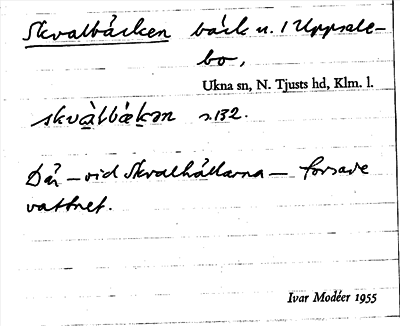 Skvalbäcken bäck n. i Uppsale-
bo,
Ukna sn, N. Tjusts hd, Klm. l.
skvàlbækən s.132.
Där – vid Skvalhällarna – forsade
vattnet.
Ivar Modéer 1955